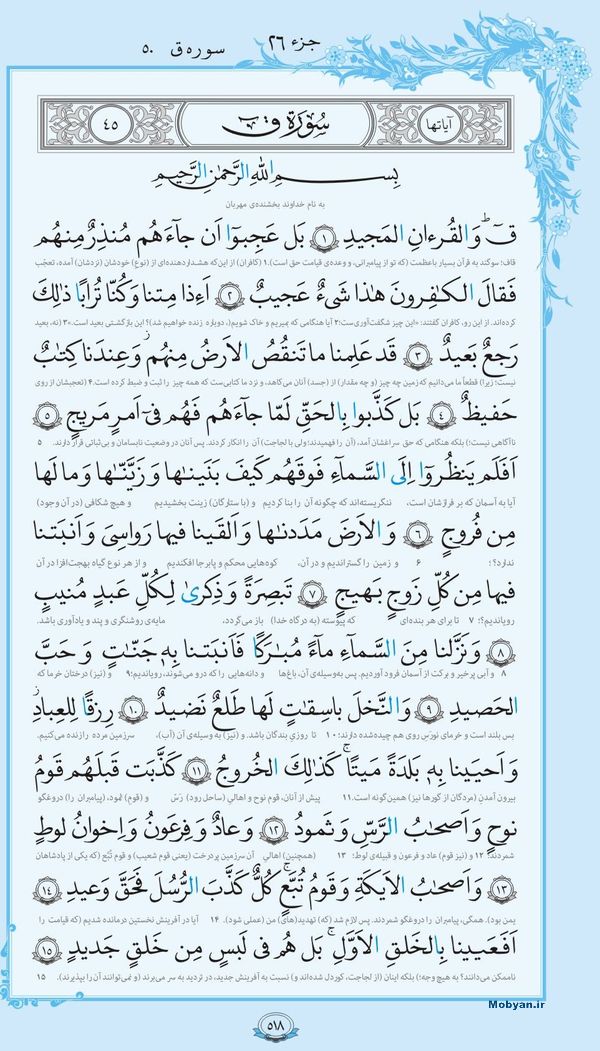 جزء ۲۶
سوره ق ۵۰
آیاتها
سُورَة ق
٤٥
بِسمِ اللهِ الرَّحمٰنِ الرَّحیمِ
به نام خداوند بخشنده‌ی مهربان
قٓ ۚ وَالقُرءانِ المَجیدِ ﴿۱﴾ بَل عَجِبوٓا اَن جآءَهُم مُنذِرٌ مِنهُم
قاف؛ سوگند به قرآن بسیار باعظمت (که تو از پیامبرانی، و وعده‌ی قیامت حق است).۱ (کافران) از این‌که هشداردهنده‌ای از (نوع) خودشان (نزدشان) آمده، تعجّب
فَقالَ الکٰفِرونَ هٰذا شَیءٌ عَجیبٌ ﴿۲﴾ اَءِذا مِتنا وَکُنّا تُرابًا ذٰلِكَ
کرده‌اند. از این رو، کافران گفتند: «این چیز شگفت‌آوری‌ست؛۲ آیا هنگامی که بمیریم و خاک شویم(، دوباره زنده خواهیم شد)؟ این بازگشتی بعید است.»۳ (نه، بعید
رَجعٌ بَعیدٌ ﴿۳﴾ قَد عَلِمنا ما تَنقُصُ الاَرضُ مِنهُم وَعِندَنا کِتٰبٌ
نیست؛ زیرا) قطعاً ما می‌دانیم که زمین چه چیز (و چه مقدار) از (جسد) آنان می‌کاهد، و نزد ما کتابی‌ست که همه چیز را ثبت و ضبط کرده است.۴ (تعجبشان از روی
حَفیظٌ ﴿۴﴾ بَل کَذَّبوا بِالحَقِّ لَمّا جآءَهُم فَهُم فیٓ اَمرٍ مَریجٍ ﴿۵﴾
ناآگاهی نیست؛) بلکه هنگامی که حق سراغشان آمد، (آن را فهمیدند؛ ولی با لجاجت) آن را انکار کردند. پس آنان در وضعیت نابسامان و بی‌ثباتی قرار دارند. ۵
اَفَلَم یَنظُروٓا اِلَی السَّمآءِ فَوقَهُم کَیفَ بَنَینٰها وَزَیَّنّٰها وَما لَها
آیا به آسمان که بر فرازشان است، ننگریسته‌اند که چگونه آن را بنا کردیم و (با ستارگان) زینت بخشیدیم و هیچ شکافی (در آن وجود)
مِن فُروجٍ ﴿۶﴾ وَالاَرضَ مَدَدنٰها وَاَلقَینا فیها رَواسِیَ وَاَنبَتنا
ندارد؟؛ ۶ و زمین را گستراندیم و در آن، کوه‌هایی محکم و پابرجا افکندیم و از هر نوع گیاه بهجت‌افزا در آن
فیها مِن کُلِّ زَوجٍ بَهیجٍ ﴿۷﴾ تَبصِرَةً وَذِکریٰ لِکُلِّ عَبدٍ مُنیبٍ
رویاندیم؟؛ ۷ تا برای هر بنده‌ای که پیوسته (به درگاه خدا) باز می‌گردد، مایه‌ی روشنگری و پند و یادآوری باشد.
﴿۸﴾ وَنَزَّلنا مِنَ السَّمآءِ مآءً مُبٰرَکًا فَاَنبَتنا بِه جَنّٰتٍ وَحَبَّ
۸ و آبی پرخیر و برکت از آسمان فرود آوردیم. پس به‌وسیله‌ی آن، باغ‌ها و دانه‌هایی را که درو می‌شوند، رویاندیم؛۹ و (نیز) درختان خرما که
الحَصیدِ ﴿۹﴾ وَالنَّخلَ باسِقٰتٍ لَها طَلعٌ نَضیدٌ ﴿۱۰﴾ رِزقًا لِلعِبادِ
بس بلند است و خرمای نورس روی هم چیده‌شده دارند؛۱۰ تا روزیِ بندگان باشد. و (نیز) به وسیله‌ی آن (آب)، سرزمین مرده را زنده می‌کنیم.
وَاَحیَینا بِه بَلدَةً مَیتًا ۚ کَذٰلِكَ الخُروجُ ﴿۱۱﴾ کَذَّبَت قَبلَهُم قَومُ
بیرون آمدنِ (مردگان از گورها نیز) همین‌گونه است.۱۱ پیش از آنان، قوم نوح و اهالیِ (ساحل رود) رَسّ و (قوم) ثمود، (پیامبران را) دروغگو
نوحٍ وَاَصحٰبُ الرَّسِّ وَثَمودُ ﴿۱۲﴾ وَعادٌ وَفِرعَونُ وَاِخوانُ لوطٍ
شمردند؛۱۲ و (نیز قوم) عاد و فرعون و قبیله‌ی لوط؛ ۱۳ (همچنین) اهالی آن سرزمین پردرخت (یعنی قوم شعیب) و قوم تُبَّع (که یکی از پادشاهان
﴿۱۳﴾ وَاَصحٰبُ الاَیکَةِ وَقَومُ تُبَّعٍ ۚ کُلٌّ کَذَّبَ الرُّسُلَ فَحَقَّ وَعیدِ ﴿۱۴﴾
یمن بود). همگی، پیامبران را دروغگو شمردند. پس لازم شد (که) تهدید(های) من (عملی شود). ۱۴ آیا در آفرینش نخستین درمانده شدیم (که قیامت را
اَفَعَیینا بِالخَلقِ الاَوَّلِ ۚ بَل هُم فی لَبسٍ مِن خَلقٍ جَدیدٍ ﴿۱۵﴾
ناممکن می‌دانند؟ به هیچ وجه؛) بلکه اینان (از لجاجت، کوردل شده‌اند و) نسبت به آفرینش جدید، در تردید به سر می‌برند (و نمی‌توانند آن را بپذیرند). ۱۵
Mobyan.ir
۵۱۸